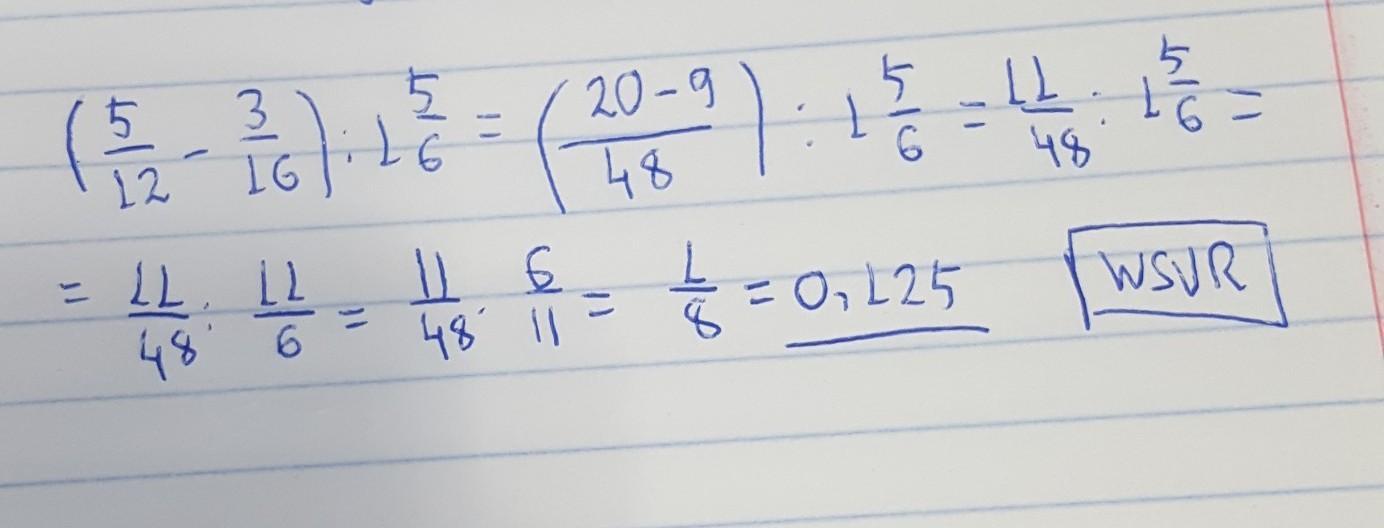 (5/12 - 3/16) : 1 5/6 = (20-9/48) : 1 5/6 = 11/48 : 1 5/6 =
= 11/48 : 11/6 = 11/48 · 6/11 = 1/8 = 0,125 WSVR